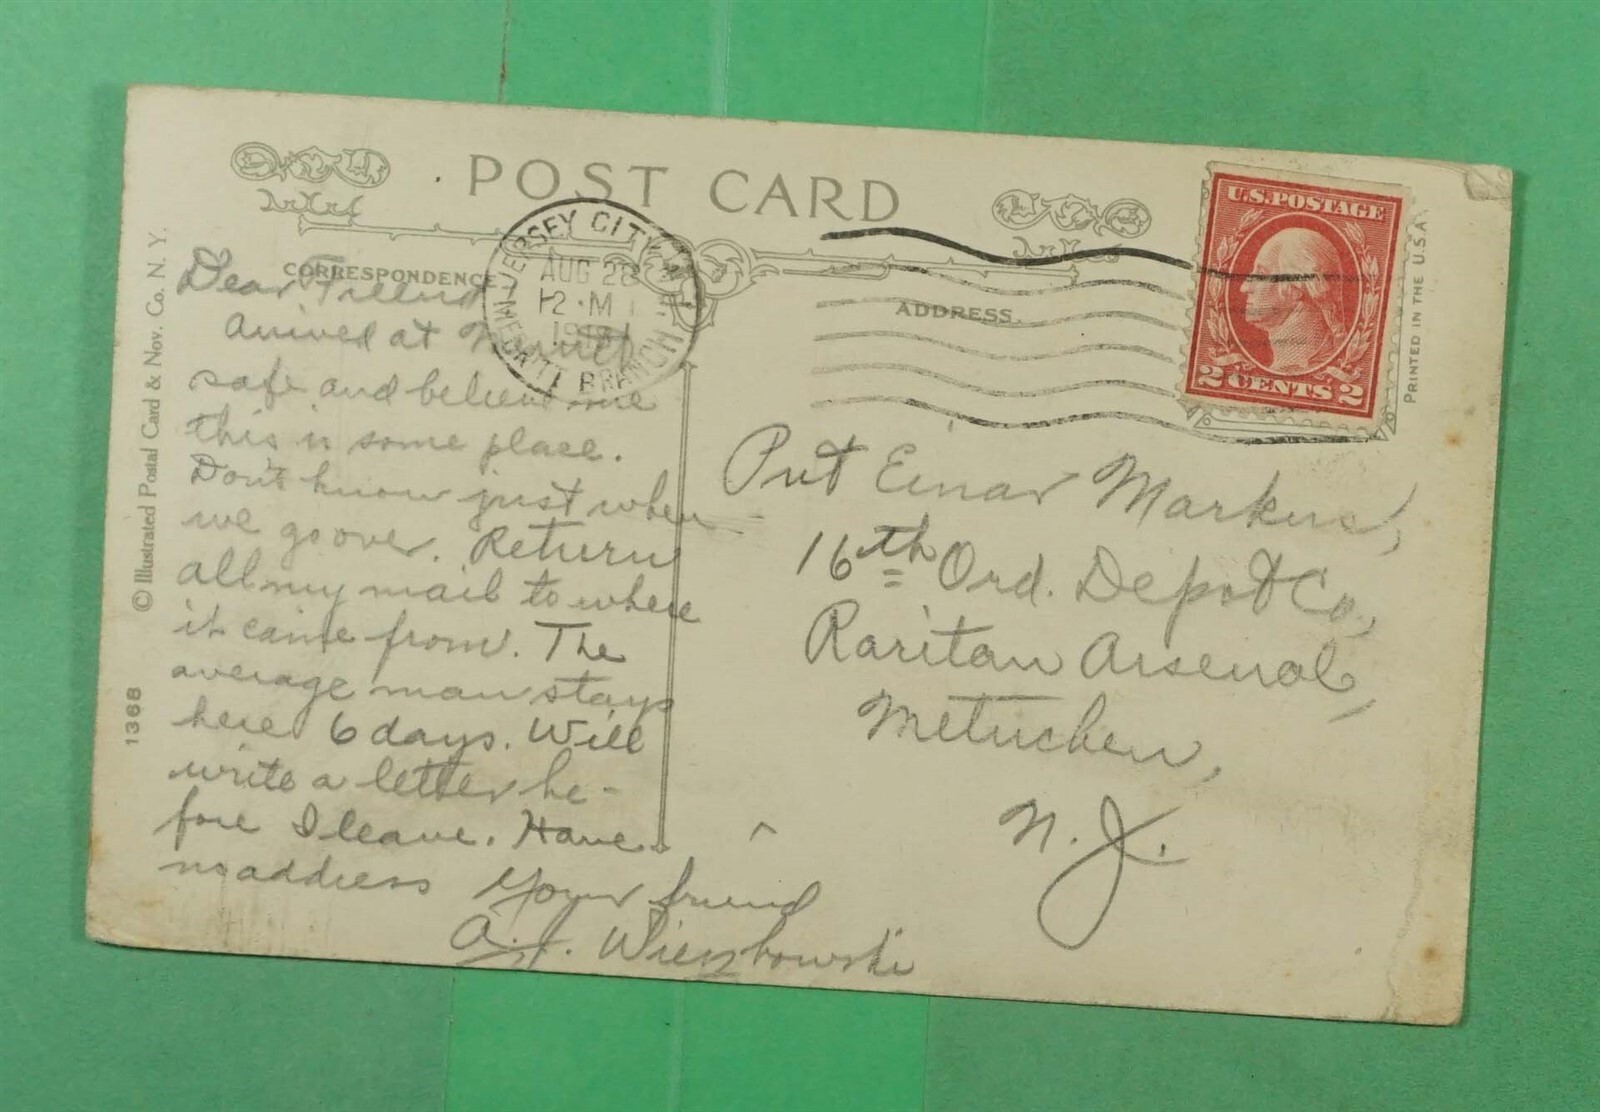 POST CARD
CORRESPONDENCE
ADDRESS.
U.S. POSTAGE
2 CENTS 2
JERSEY CITY, N.J.
AUG 28
12 M
BRANCH
Dear Friend
Arrived at
safe and believe me
this is some place.
Don't know just when
we go over. Return
all my mail to where
it came from. The
average man stays
here 6 days. Will
write a letter be-
fore I leave. Have
no address Your friend
A. J. Wierzbowski
Pvt Einar Markus,
16th Ord. Depot Co.,
Raritan Arsenal,
Metuchen,
N. J.
© Illustrated Postal Card & Nov. Co. N. Y.
1368
PRINTED IN THE U.S.A.